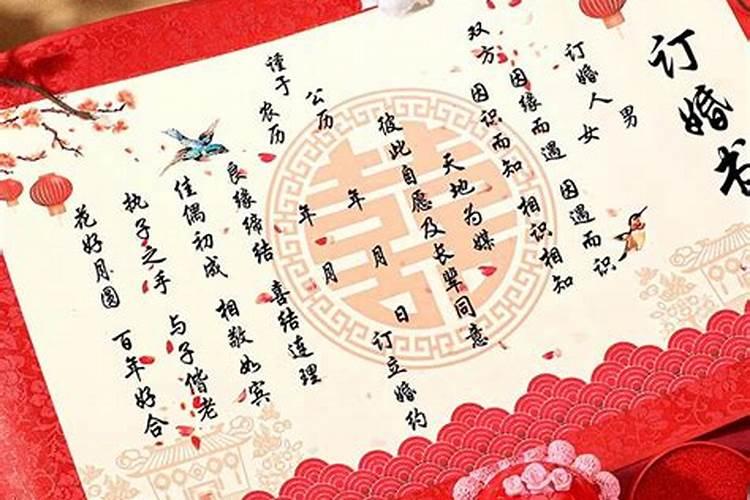 订婚书
男
订婚人 女
双方 因缘而遇 因遇而识
因识而知 相识相知
天地为媒
彼此自愿及长辈同意
谨于
公历 年 月 日 订立婚约
农历 年 月
良缘缔结 喜结连理
佳偶初成 相敬如宾
执子之手 与子偕老
花好月圆 百年好合